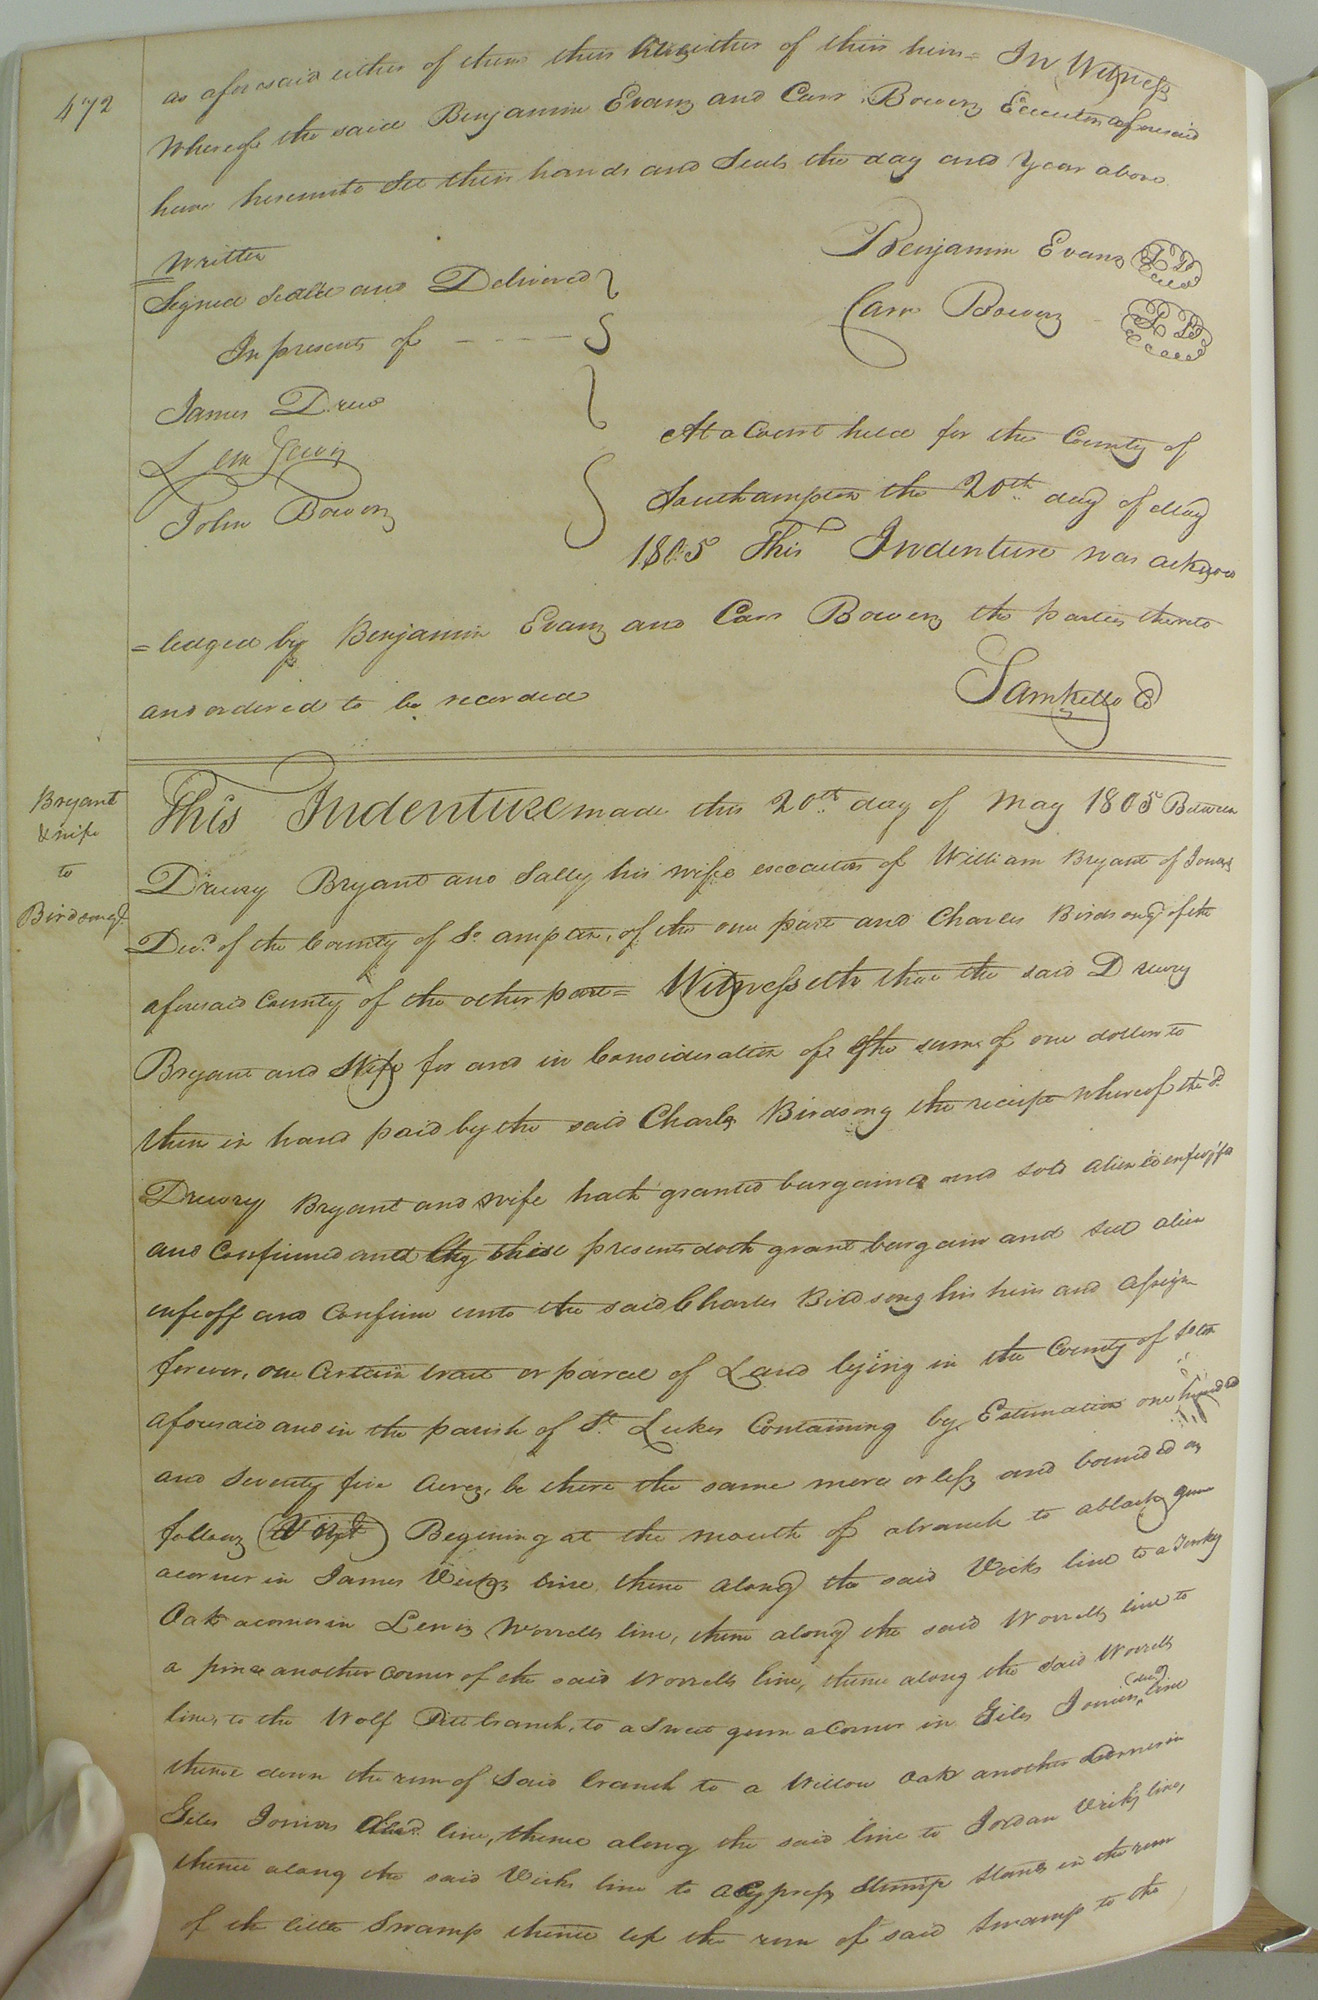 472
as aforesaid either of them their heirs either of their heirs = In Witness
Whereof the said Benjamin Evans and Carr Bowers Executors aforesaid
have hereunto Set their hands and Seals the day and Year above
Written
Benjamin Evans LS
Signed Sealed and Delivered
Carr Bowers LS
In presents of
James Drew
Lem Jewin
John Bowers
At a Court held for the County of
Southampton the 20th day of May
1805 This Indenture was acknow
=ledged by Benjamin Evans and Carr Bowers the parties thereto
and ordered to be recorded
Saml Kello CC
Bryant
& wife
to
Birdsong
This Indenture made this 20th day of May 1805 Between
Drewry Bryant and Sally his wife executors of William Bryant of Jones
Decd. of the County of So ampton, of the one part and Charles Birdsong of the
aforesaid County of the other part = Witnesseth that the said Drewry
Bryant and Wife for and in Consideration of the sum of one dollar to
them in hand paid by the said Charles Birdsong the receipt whereof the sd.
Drewry Bryant and wife hath granted bargained and sold aliened enfeoff'd
and Confirmed and by these presents doth grant bargain and sell alien
enfeoff and Confirm unto the said Charles Birdsong his heirs and assigns
forever, one Certain tract or parcel of Land lying in the County of So ton
aforesaid and in the parish of St. Lukes Containing by Estimation one hundred
and Seventy five Acres, be there the same more or less and bounded as
follows (Vizt) Begining at the mouth of a branch to a black gum
a corner in James Vicks line thence along the said Vicks line to a Turkey
Oak a corner in Lewis Worrells line, thence along the said Worrells line to
a pine another corner of the said Worrells line, thence along the said Worrells
line, to the Wolf Pitt branch, to a Sweet gum a Corner in Giles Joiners (decd) line
thence down the run of Said branch to a Willow Oak another Corner in
Giles Joiners decd. line, thence along the said line to Jordan Vicks line,
thence along the said Vicks line to a Cypress Stump Stands in the run
of the little Swamp thence up the run of said Swamp to the